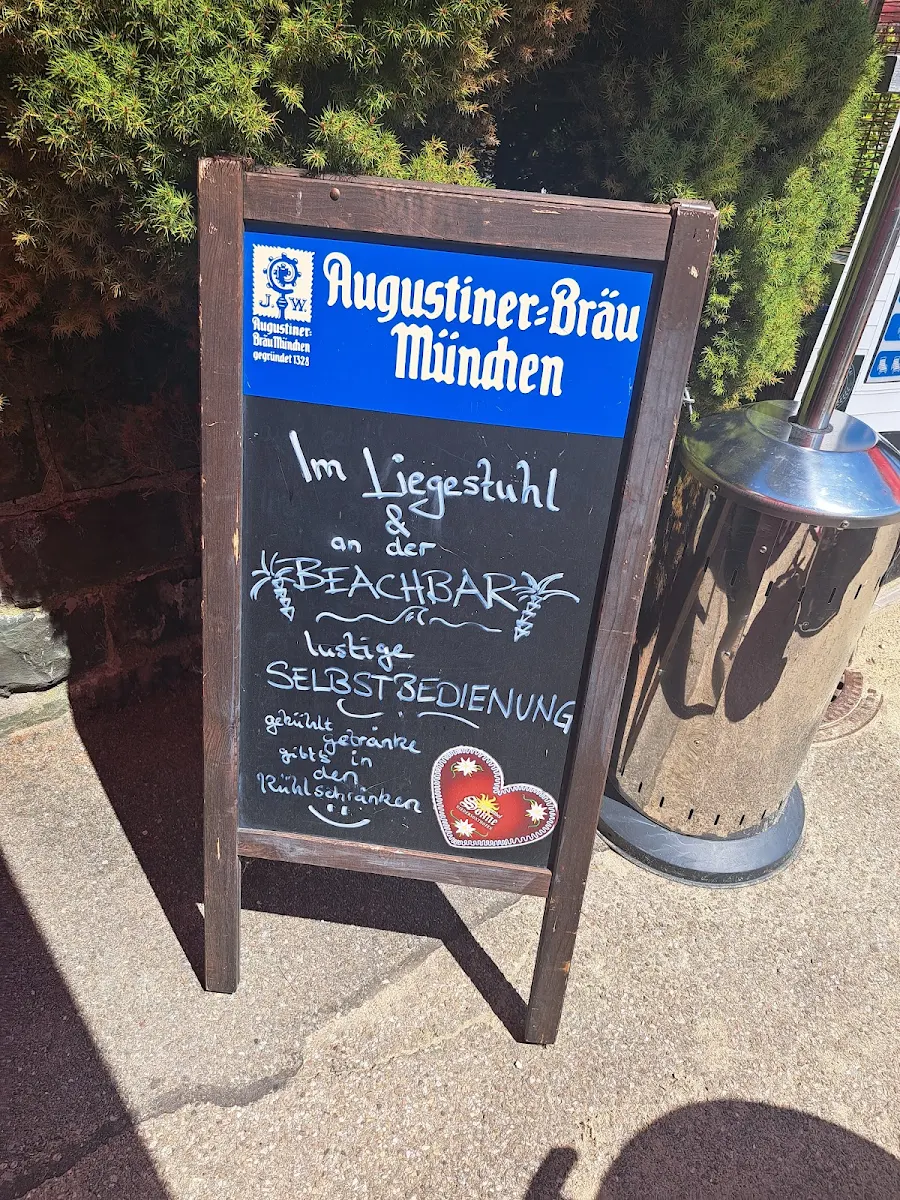 J. W
Augustiner=
Bräu München
gegründet 1328
Augustiner=Bräu
München
Im Liegestuhl
&
an der
BEACHBAR
lustige
SELBSTBEDIENUNG
gekühlt
getränke
gibt's in
den
Kühlschränken
Sonne